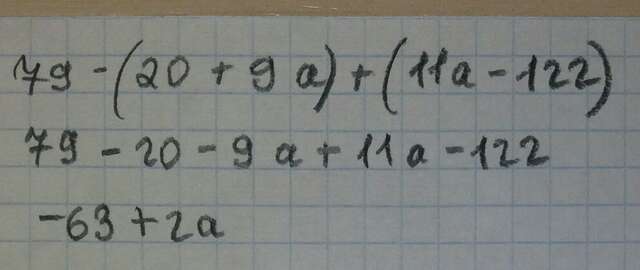 79 - (20 + 9a) + (11a - 122)
79 - 20 - 9a + 11a - 122
-63 + 2a